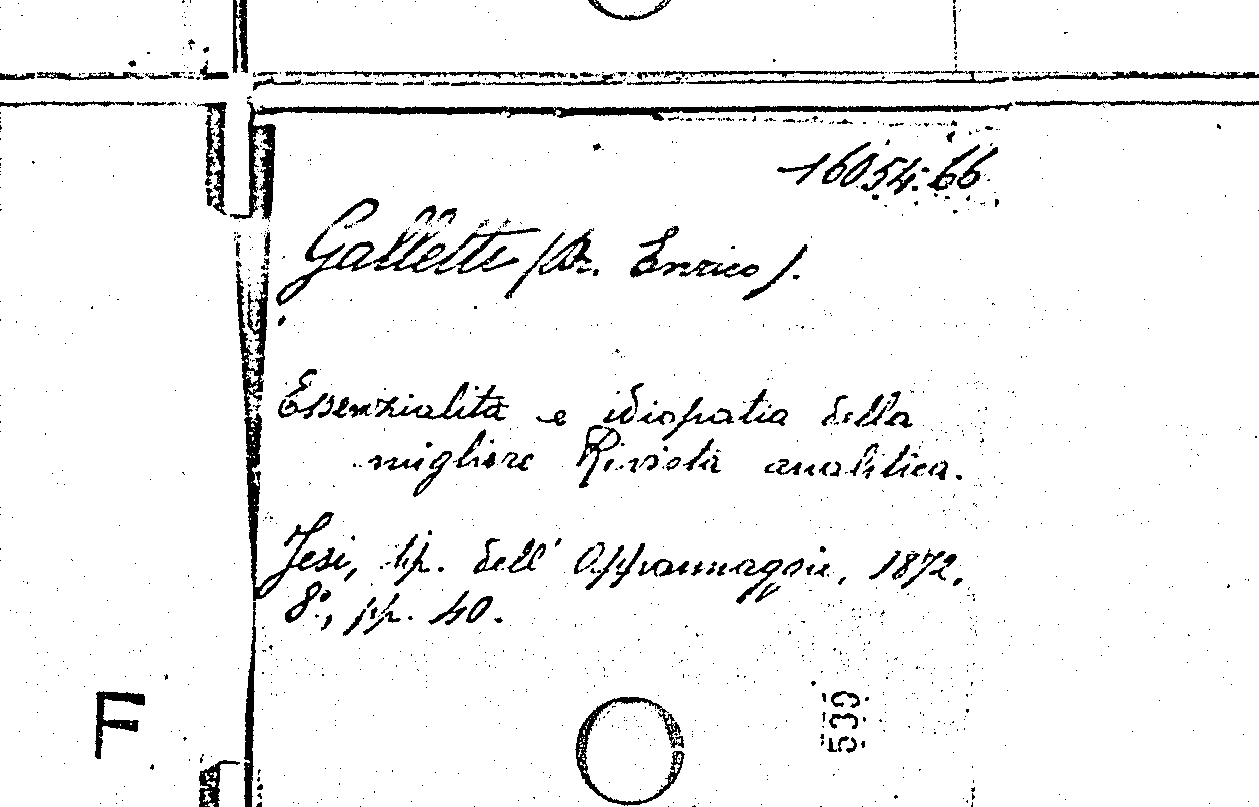 16054.66
Galletti (Dr. Enrico).
Essenzialità e idiopatia della
migliare Rivista analitica.
Jesi, tip. dell' 1872.
8°, pp. 40.
F
539